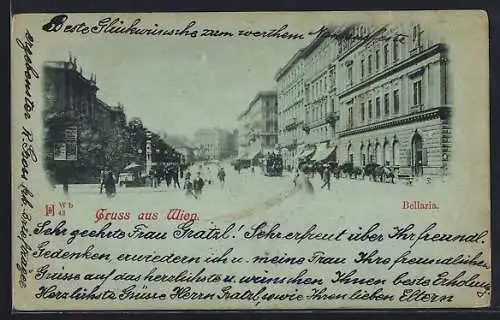 Beste Glückwünsche zum werthem Namensfeste
Wb
43
Gruss aus Wien.
Bellaria.
Sehr geehrte Frau Gratzl! Sehr erfreut über Ihr freundl.
Gedenken, erwiedern ich u. meine Frau Ihre freundlichen
Grüsse auf das herzlichste u. wünschen Ihnen beste Erholung
Herzlichste Grüsse Herrn Gratzl, sowie Ihren lieben Eltern
ergebenster K. Frau